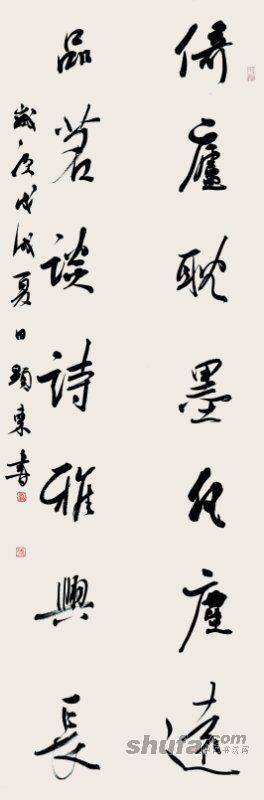 倚廬耽墨凡塵遠
品茗談詩雅興長
歲次戊戌夏日顯東書
shufa.com
中国书法网